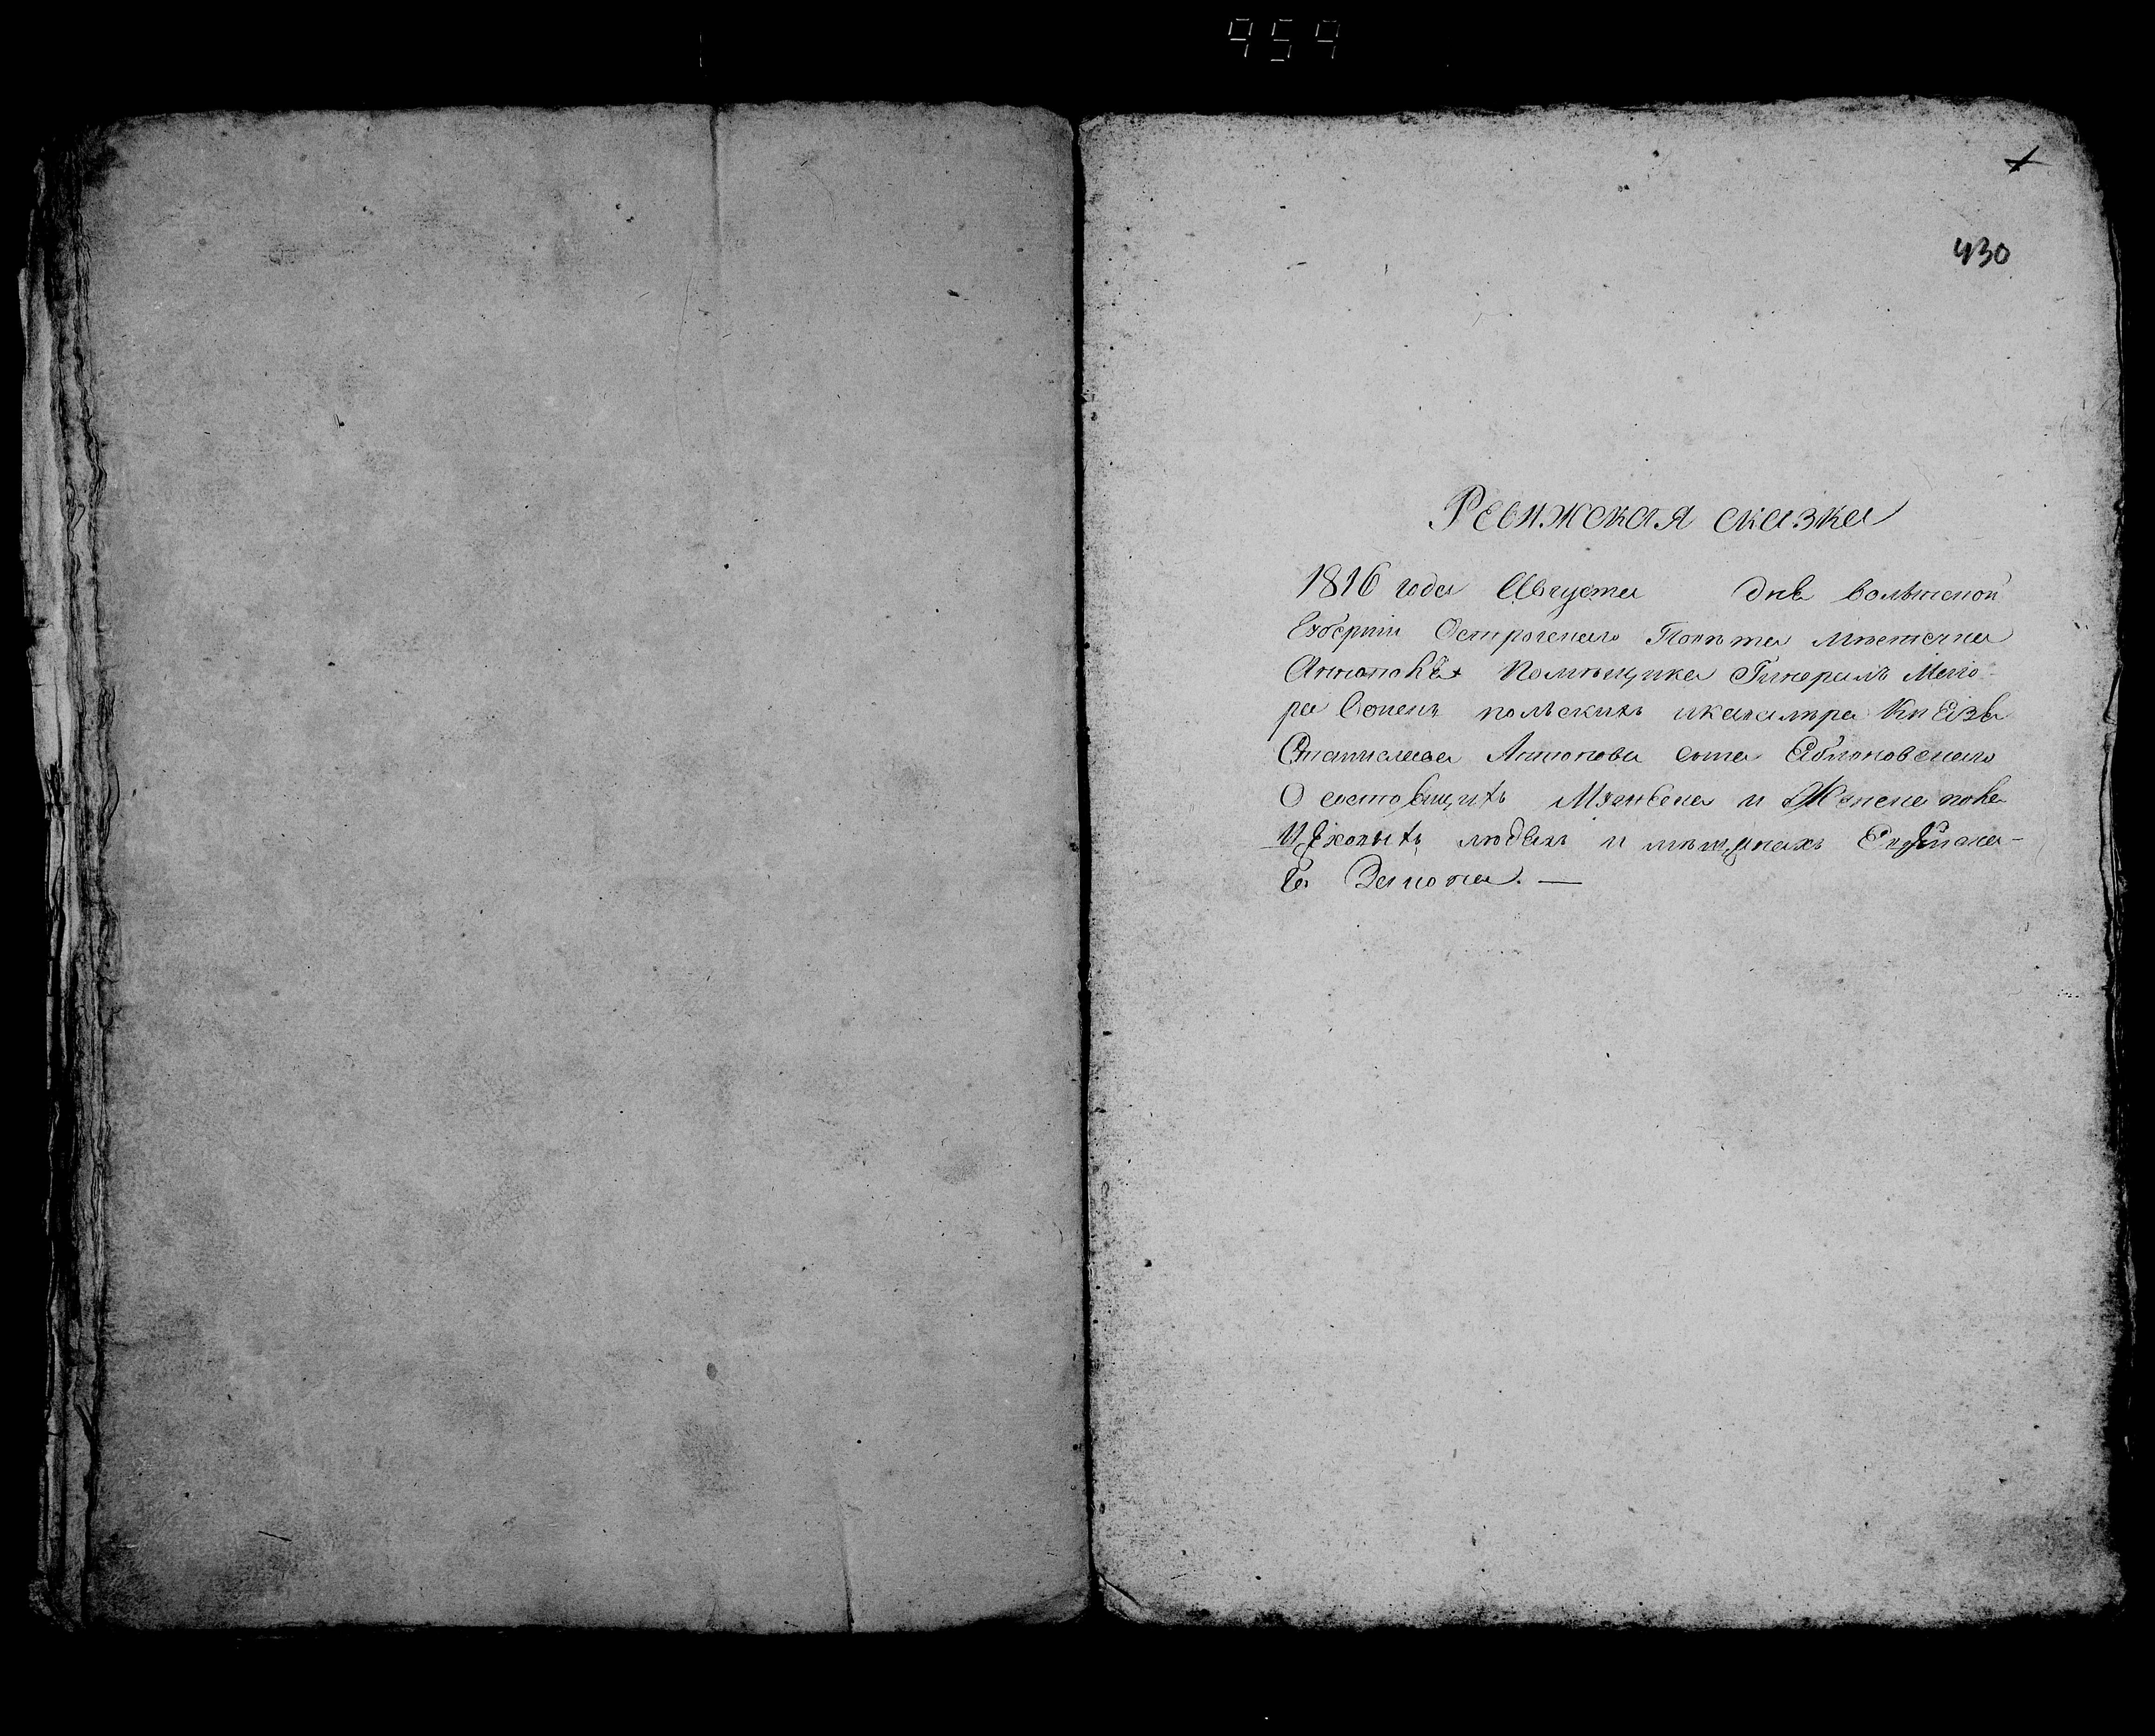 959
430
Ревижская сказка
1816 года Августа дня волынской
Губернии Острогского Повѣта мѣстечка
Антоновки Помѣщика Гинералъ Маио-
ра войскъ польскихъ икавалѣра Князя
Станислава Антонова сына Яблоновского
О состовщихъ Мужеска и Женска пола
людяхъ и мѣщанахъ
Закона. —